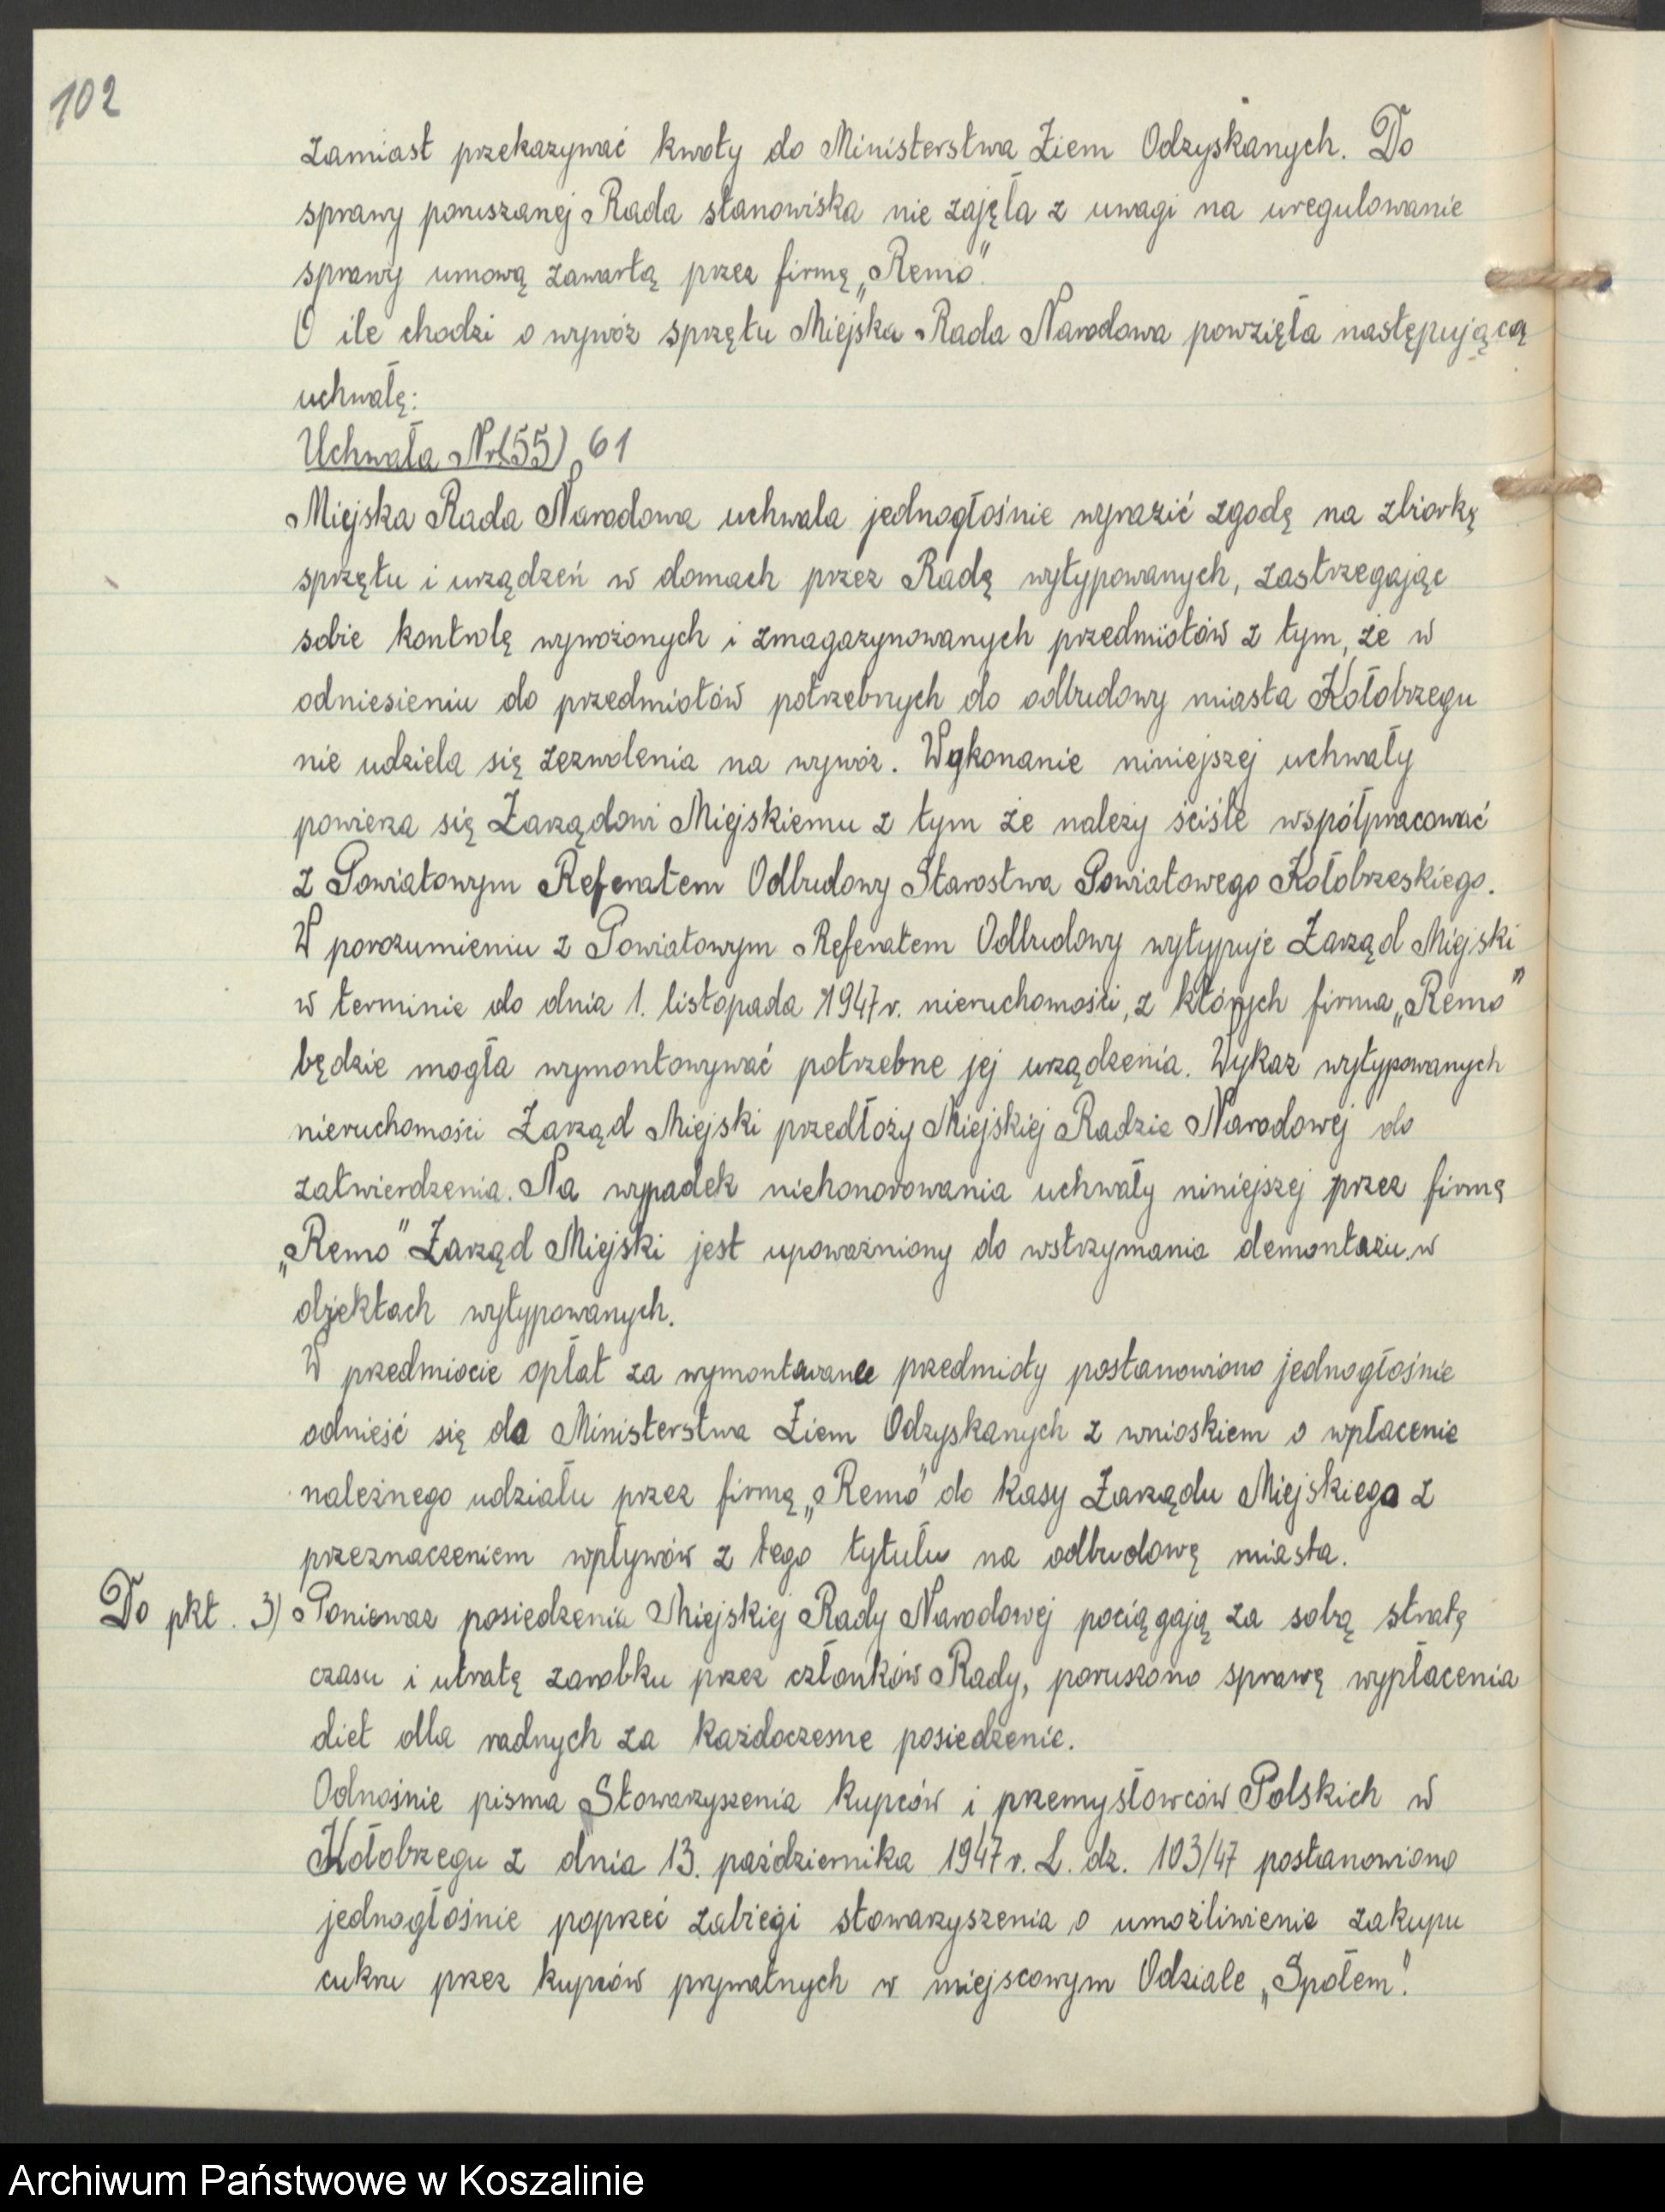 102
zamiast przekazywać kwoty do Ministerstwa Ziem Odzyskanych. Do
sprawy poruszanej Rada stanowiska nie zajęła z uwagi na uregulowanie
sprawy umową zawartą przez firmę „Remo”.
O ile chodzi o wywóz sprzętu Miejska Rada Narodowa powzięła następującą
uchwałę:
Uchwała Nr (55) 61
Miejska Rada Narodowa uchwala jednogłośnie wyrazić zgodę na zbiórkę
sprzętu i urządzeń w domach przez Radę wytypowanych, zastrzegając
sobie kontrolę wywożonych i zmagazynowanych przedmiotów z tym, że w
odniesieniu do przedmiotów potrzebnych do odbudowy miasta Kołobrzegu
nie udziela się zezwolenia na wywóz. Wykonanie niniejszej uchwały
powierza się Zarządowi Miejskiemu z tym że należy ściśle współpracować
z Powiatowym Referatem Odbudowy Starostwa Powiatowego Kołobrzeskiego.
W porozumieniu z Powiatowym Referatem Odbudowy wytypuje Zarząd Miejski
w terminie do dnia 1. listopada 1947 r. nieruchomości, z których firma „Remo”
będzie mogła wymontowywać potrzebne jej urządzenia. Wykaz wytypowanych
nieruchomości Zarząd Miejski przedłoży Miejskiej Radzie Narodowej do
zatwierdzenia. Na wypadek niehonorowania uchwały niniejszej przez firmę
„Remo” Zarząd Miejski jest upoważniony do wstrzymania demontażu w
objektach wytypowanych.
W przedmiocie opłat za wymontowane przedmioty postanowiono jednogłośnie
odnieść się do Ministerstwa Ziem Odzyskanych z wnioskiem o wpłacenie
należnego udziału przez firmę „Remo” do kasy Zarządu Miejskiego z
przeznaczeniem wpływów z tego tytułu na odbudowę miasta.
Do pkt. 3) Ponieważ posiedzenia Miejskiej Rady Narodowej pociągają za sobą stratę
czasu i utratę zarobku przez członków Rady, poruszono sprawę wypłacenia
diet dla radnych za każdoczesne posiedzenie.
Odnośnie pisma „Stowarzyszenia kupców i przemysłowców Polskich w
Kołobrzegu z dnia 13. października 1947 r. L. dz. 103/47 postanowiono
jednogłośnie poprzeć zabiegi stowarzyszenia o umożliwienie zakupu
cukru przez kupców prywatnych w miejscowym Odziale „Społem”.
Archiwum Państwowe w Koszalinie